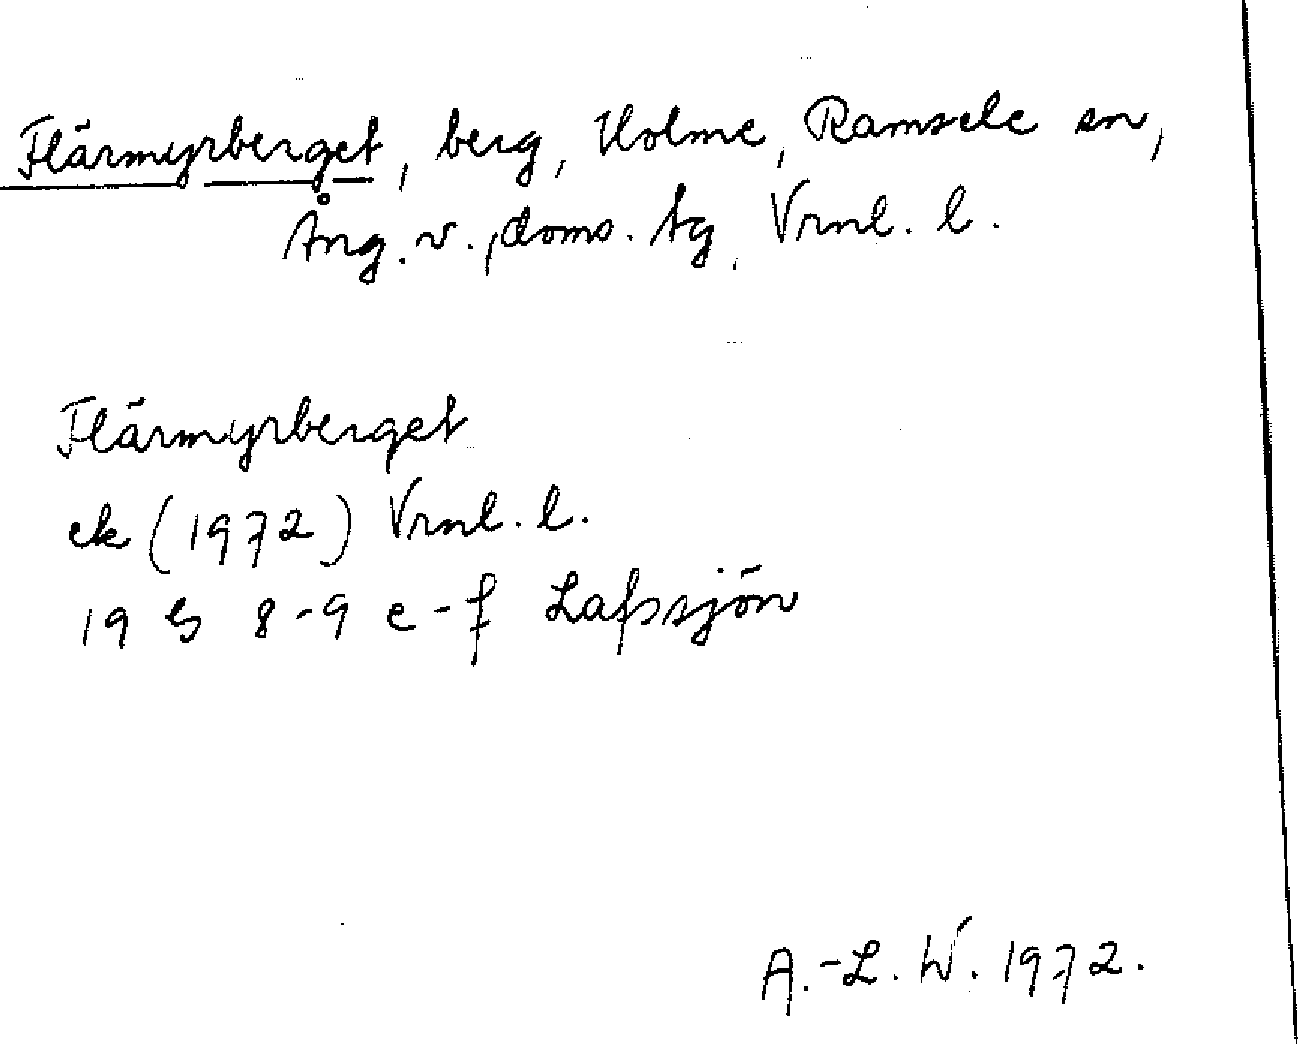 Flärmyrberget, berg, Holme, Ramsele sn,
Ång. v., doms. tg, Vrnl. l.
Flärmyrberget
ek (1972) Vrnl. l.
19 G 8-9 e-f Lafssjön
A.-L. W. 1972.